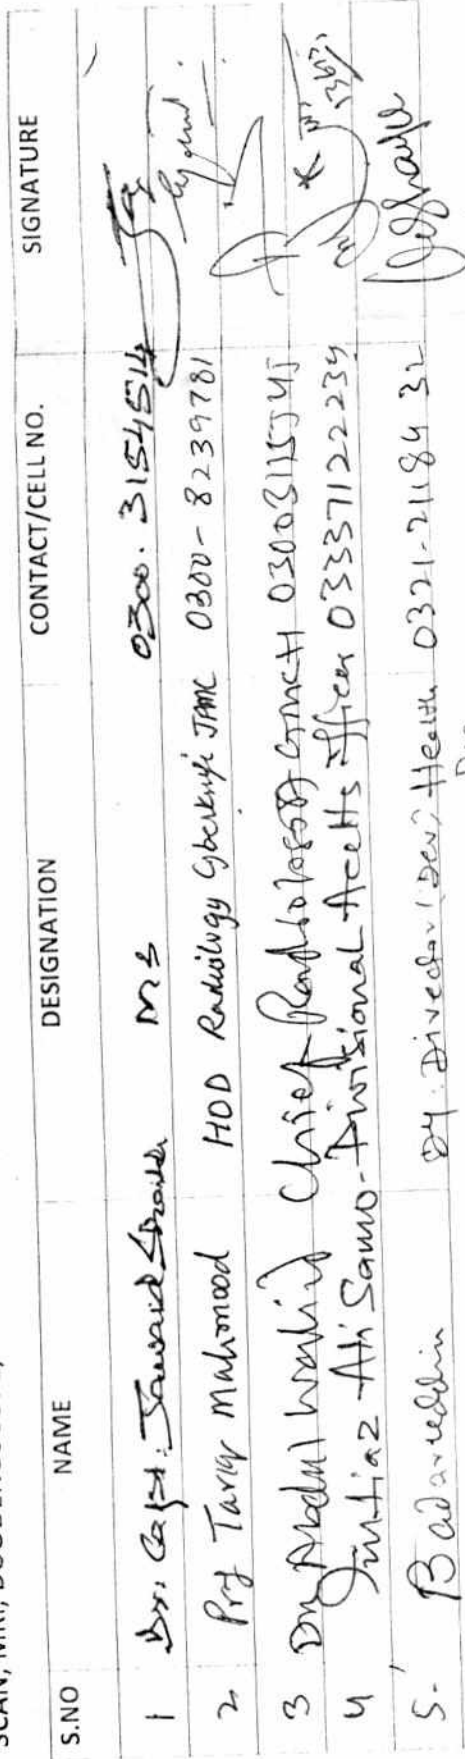 SCAN, MRI,
S.NO NAME DESIGNATION CONTACT/CELL NO. SIGNATURE
1 Dr. Capt. MS 0300. 3154514
2 Prof Tariq Mahmood HOD Radiology Cyberknife JPMC 0300-8239781
3 Dr Abdul Wahid Chief Radiologist GMCH
4 Imtiaz Ali Samo - Divisional Accetts Officer 03337122234
5- Badaruddin Dy: Director (Dev) Health 0321-2118432